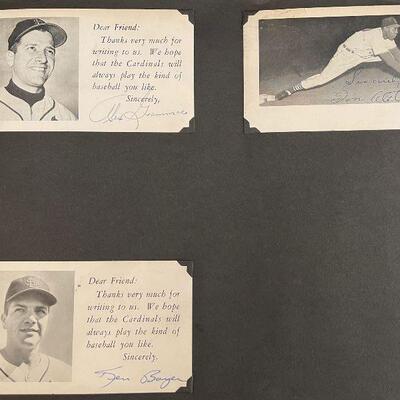 Dear Friend:
Thanks very much for
writing to us. We hope
that the Cardinals will
always play the kind of
baseball you like.
Sincerely,
Alex Grammas
Sincerely
Dear Friend:
Thanks very much for
writing to us. We hope
that the Cardinals will
always play the kind of
baseball you like.
Sincerely,
Ken Boyer